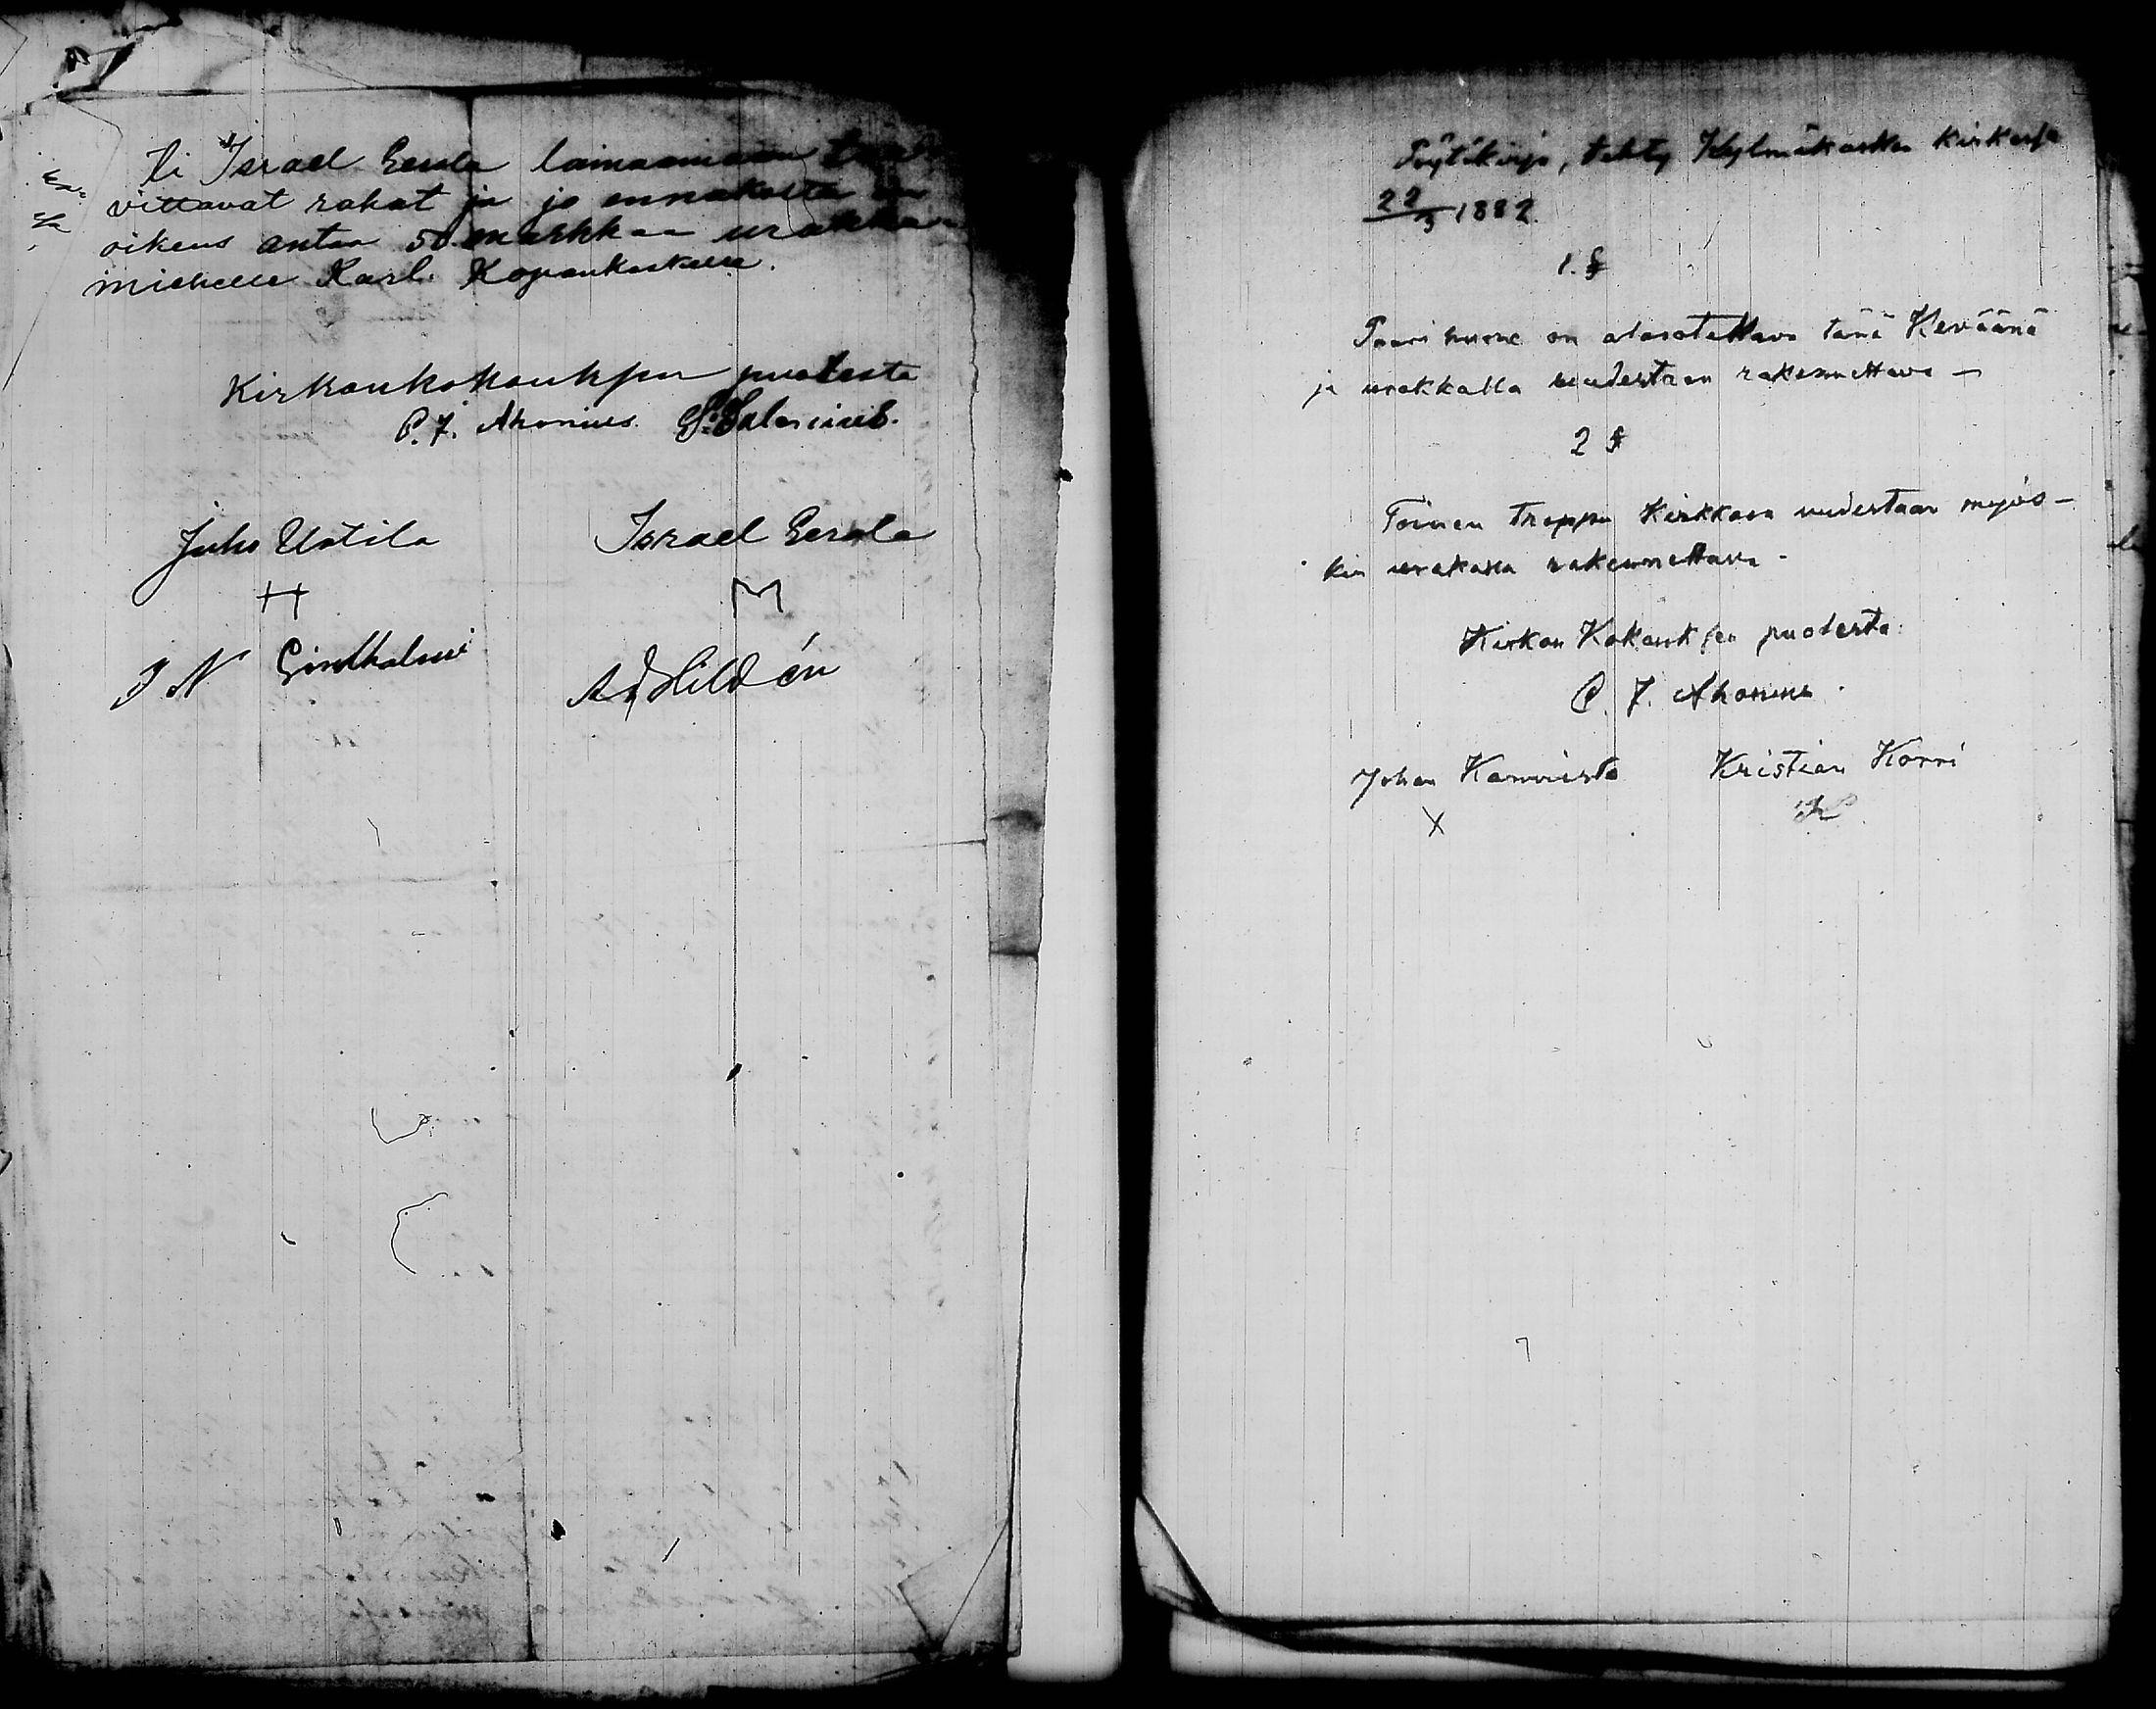 ti Israel Eerola lainaamaan
vittavat rahat ja jo ennakolta on
oikeus antaa 50 markkaa urakka
miehelle Karl. Kopankaskelle.
Kirkonkokoukhen puolesta
C. J. Ahonius.
Juho Uotila Israel Eerola
H M
J N Lindholmi Ad Hildén
Pöytäkirja, tehty Kylmäkosken kirkossa
22/3 1882.
1. §
Paari huone on alasotettava tänä Keväänä
ja urakkalla uudestaan rakennettava —
2 §
Toinen Trappu Kirkkoon uudestaan myös-
kin urakalla rakennettava -
Kirkon Kokouksen puolesta:
C. J. Ahonius.
Johan Kannisto Kristian Korri
X K